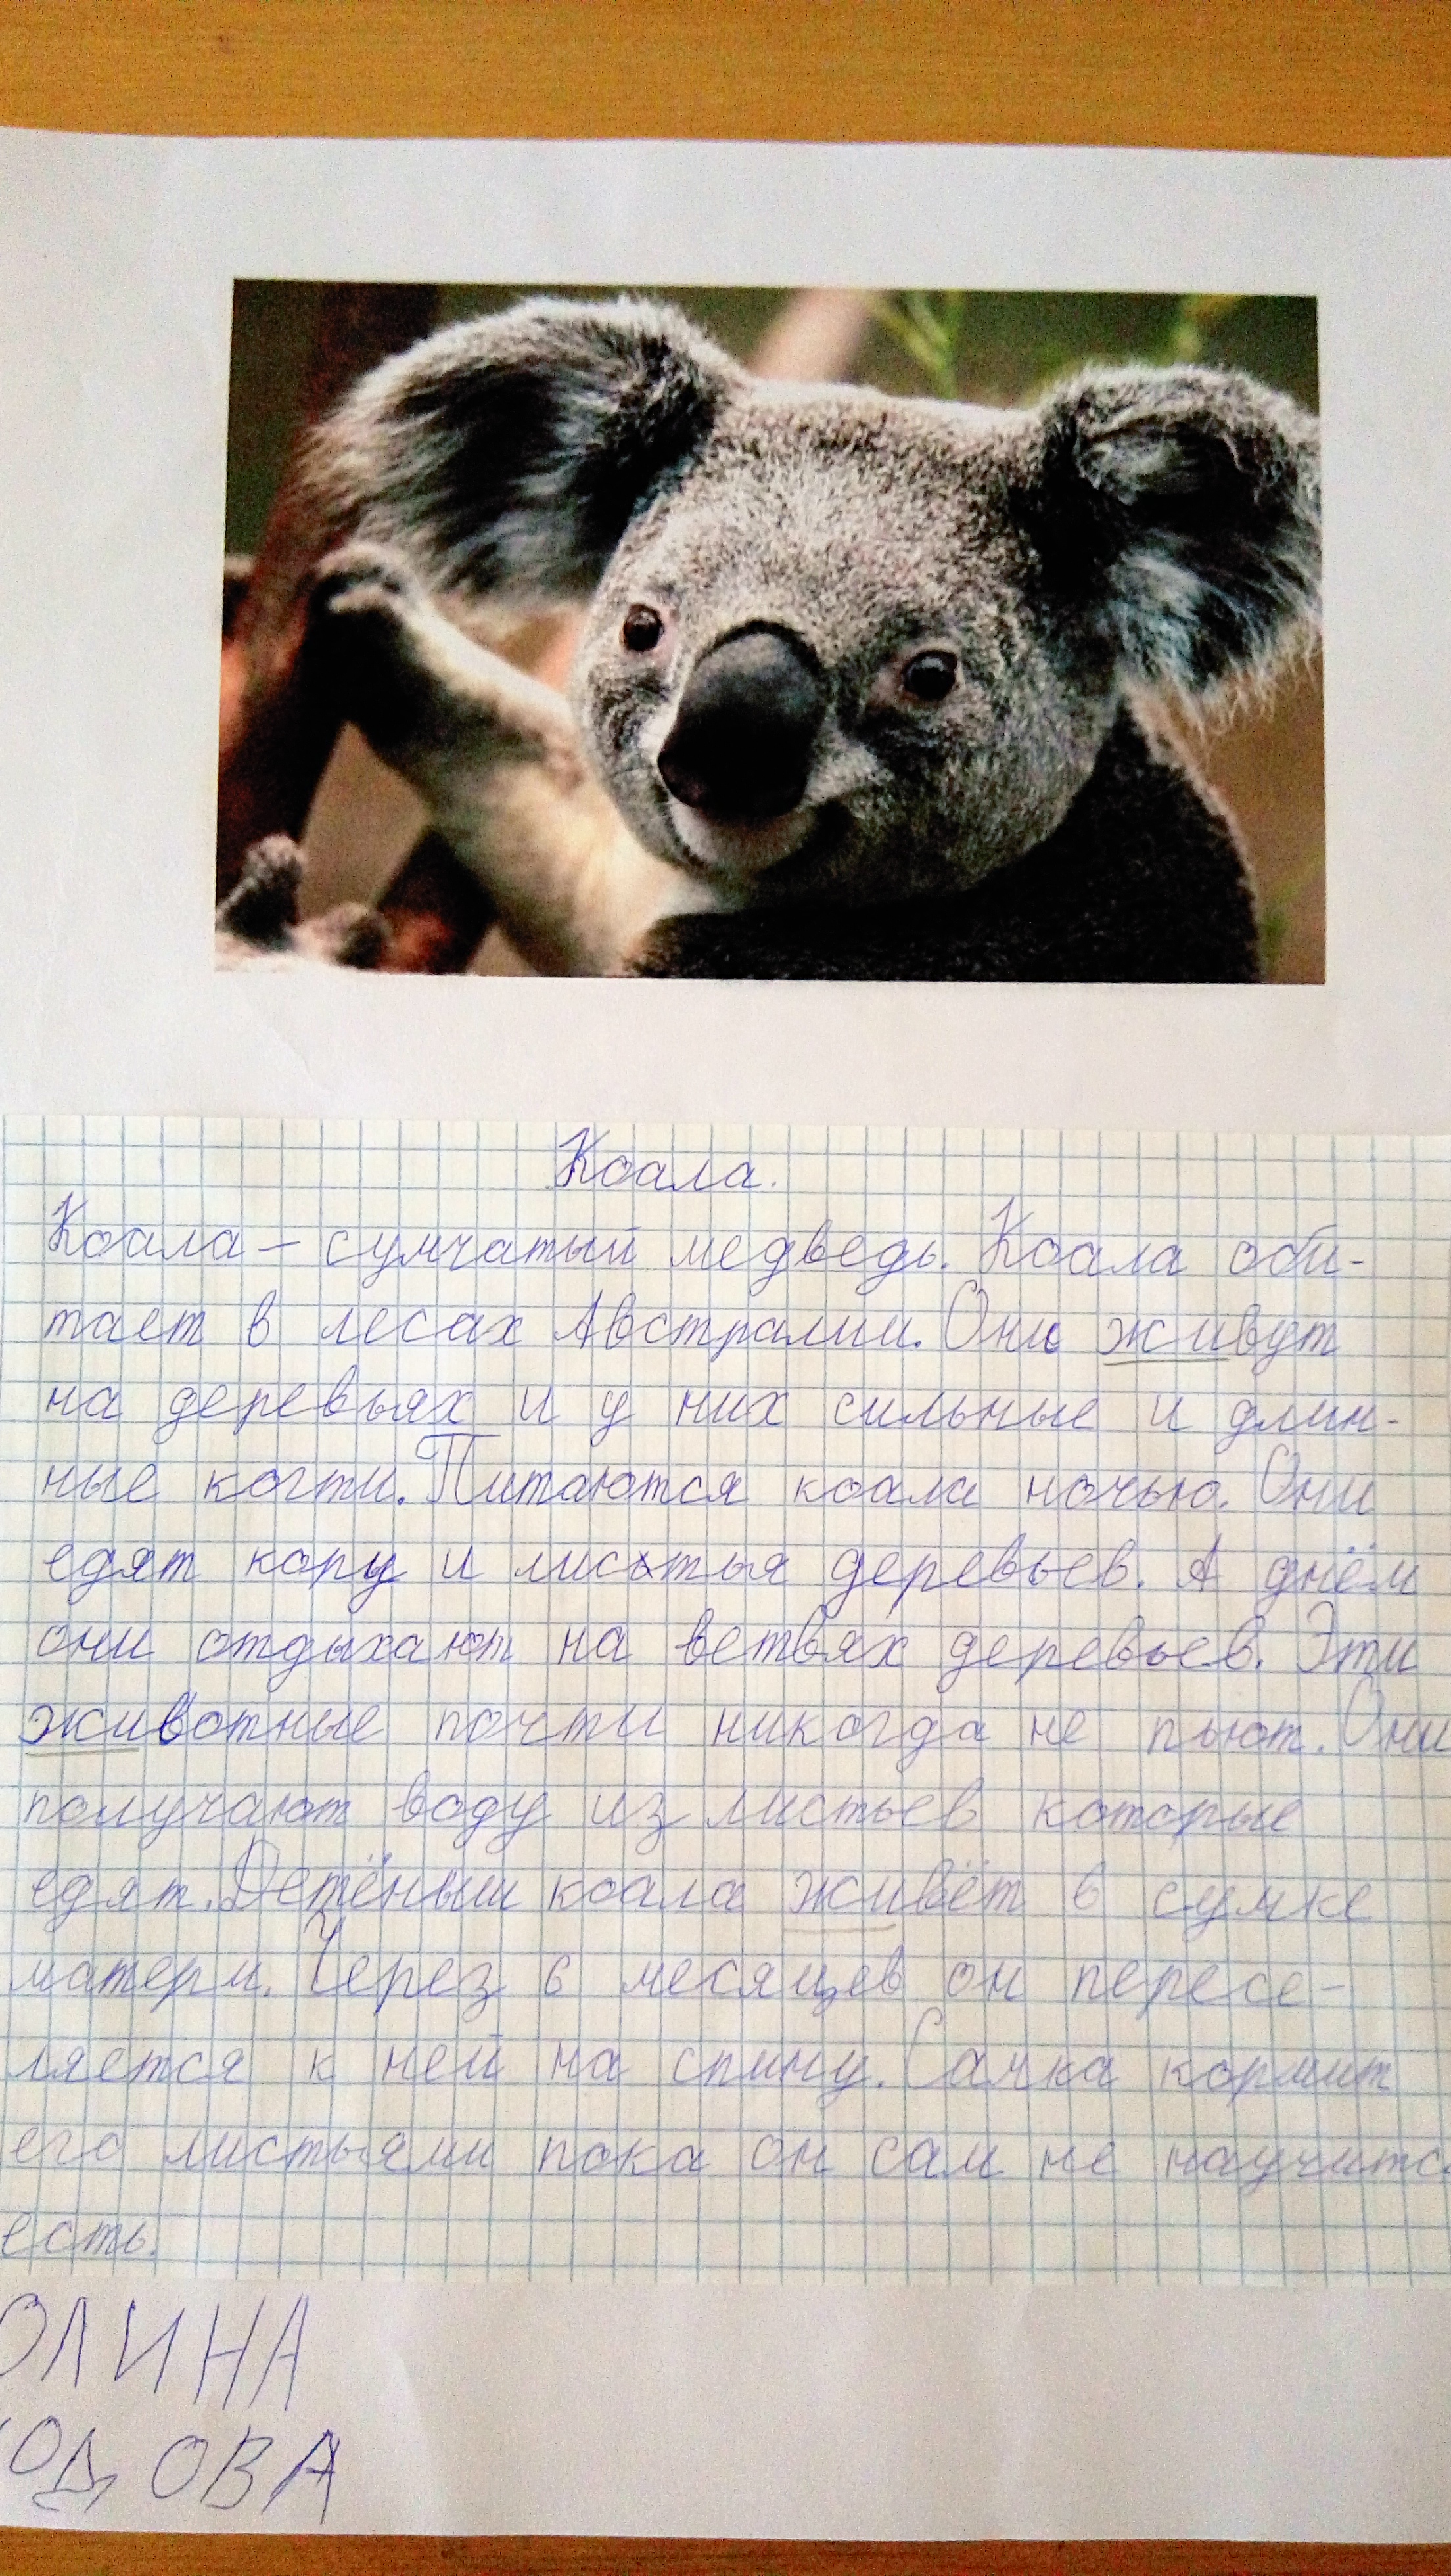 Коала.
Коала – сумчатый медведь. Коала оби-
тает в лесах Австралии. Они живут
на деревьях и у них сильные и длин-
ные когти. Питаются коала ночью. Они
едят кору и листья деревьев. А днём
они отдыхают на ветвях деревьев. Эти
животные почти никогда не пьют. Они
получают воду из листьев которые
едят. Детёныш коала живёт в сумке
матери. Через 6 месяцев он пересе-
ляется к ней на спину. Самка кормит
его листьями пока он сам не научится
есть.
ОЛИНА
ОДОВА